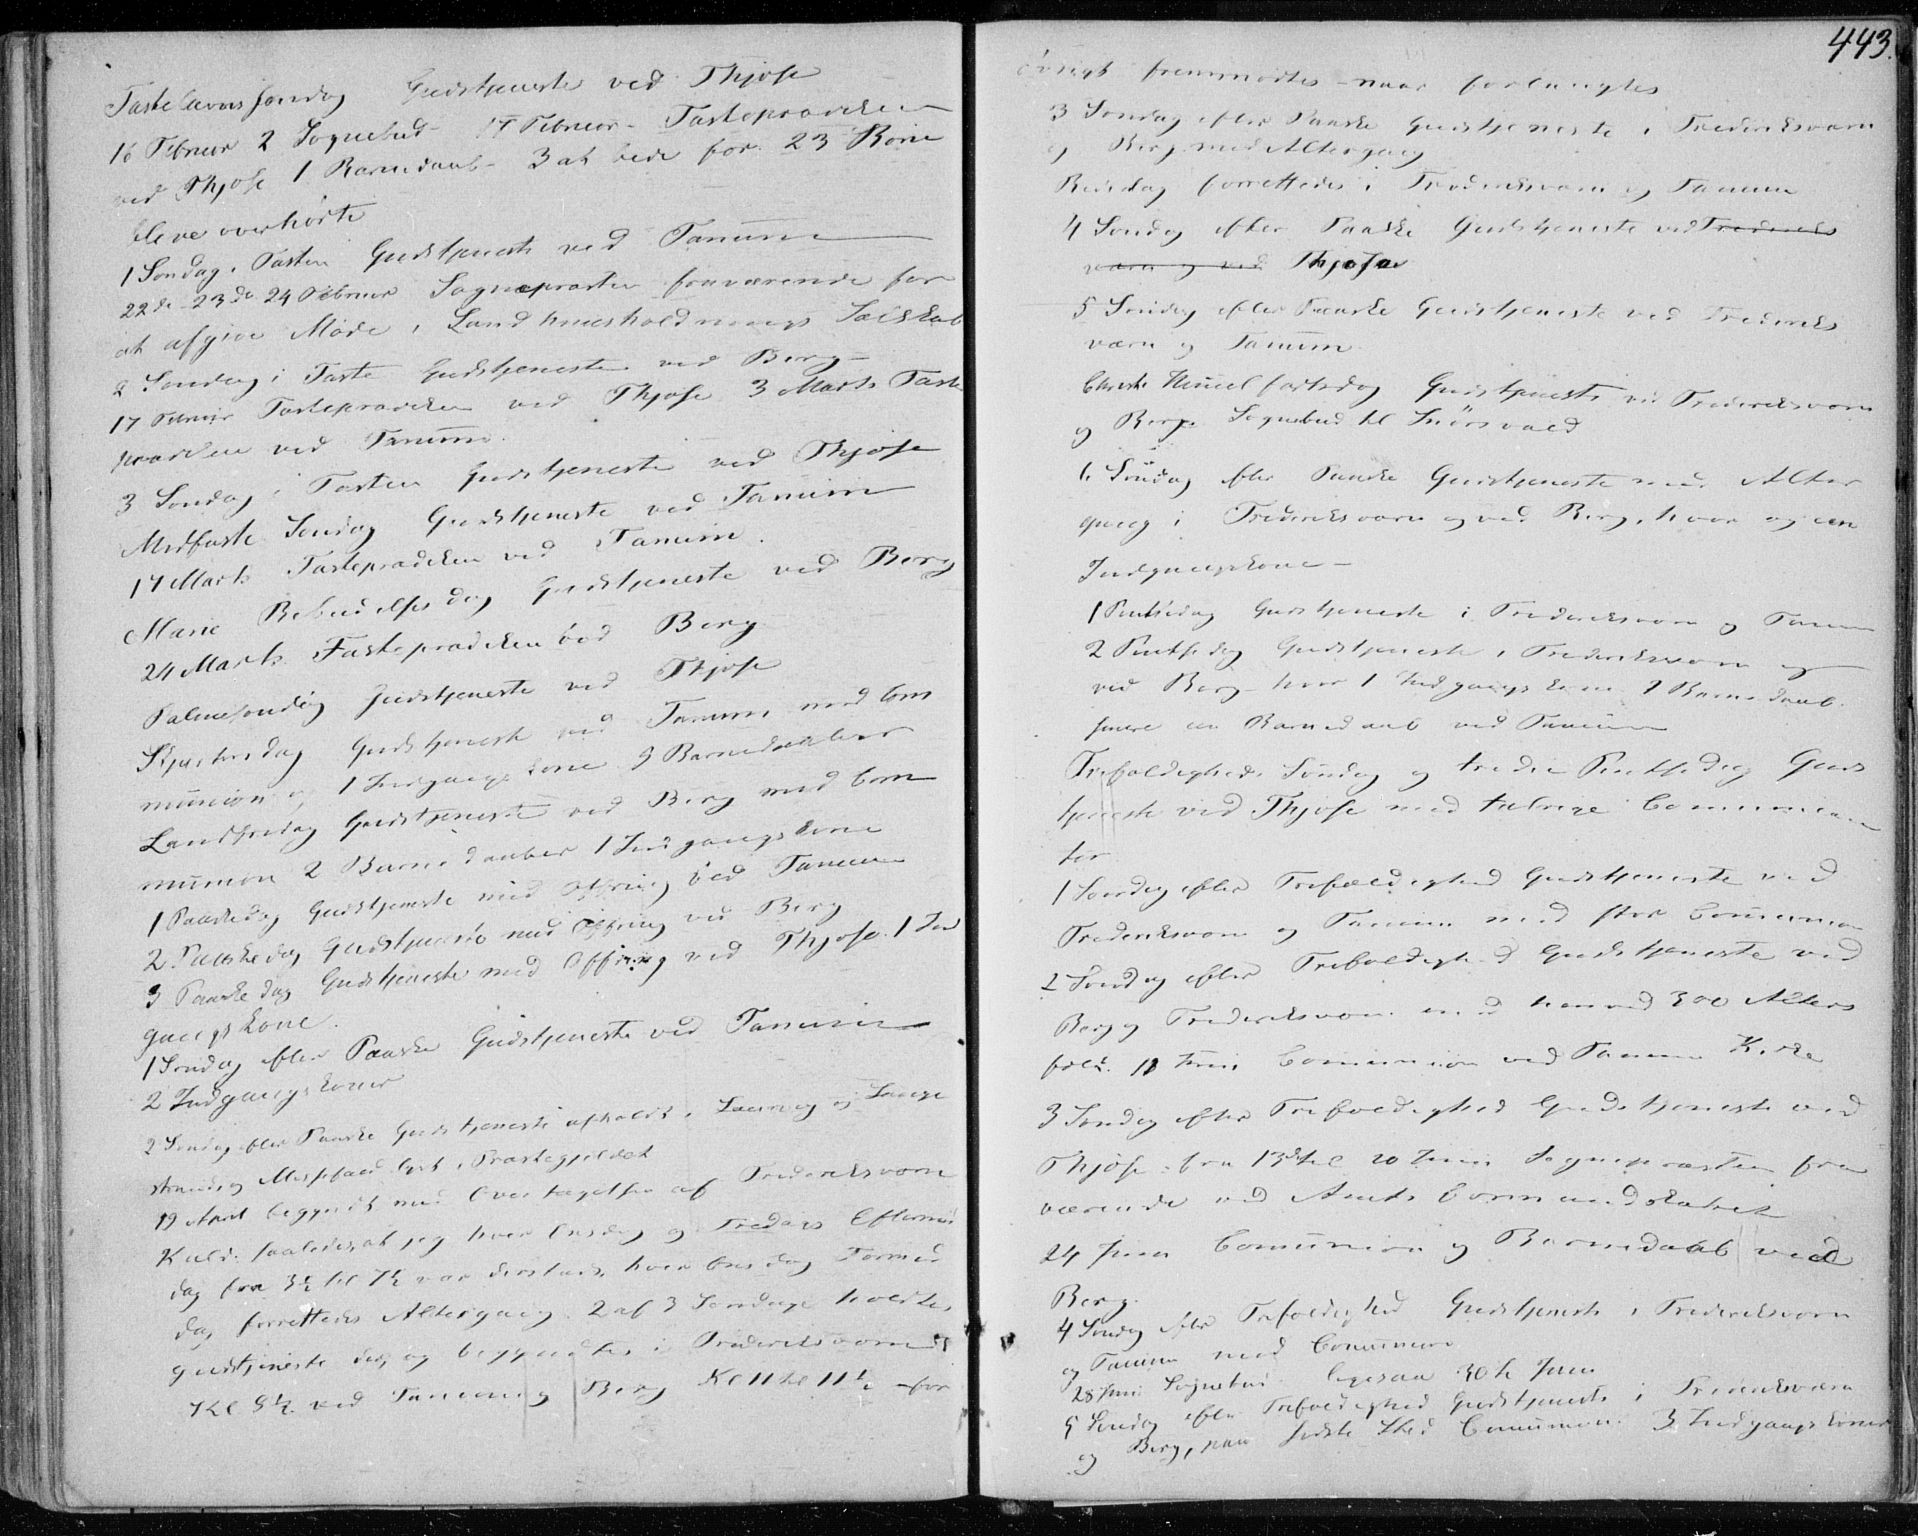 Fastelavns Søndag Gudstjeneste ved Thjose
16 Februar 2 Sognebud - 17 Februar - Fasteprædiken
ved Thjose 1 Barnedaab - 3 at bede for. 23 Børn
bleve overhørte
1 Søndag i Fasten Gudstjeneste ved Tanum
22de 23de 24 Februar Sognepræsten fraværende for
at afgive Møde i Landhuusholdnings Selskab
2 Søndag i Faste Gudstjeneste ved Berg
17 Februar Fasteprædiken ved Thjose 3 Marts Faste
prædiken ved Tanum.
3 Søndag i Fasten Gudstjeneste ved Thjose
Midfaste Søndag Gudstjeneste ved Tanum
17 Marts Fasteprædiken ved Tanum.
Marie Bebudelses dag Gudstjeneste ved Berg
24 Marts Fasteprædiken ved Berg
Palmesøndag Gudstjeneste ved Thjose
Skjærtorsdag Gudstjeneste ved Tanum med Com
munion og 1 Indgangskone 3 Barnedaaber
Langfredag Gudstjeneste ved Berg med Com
munion 2 Barnedaaber 1 Indgangskone
1 Paaskedag Gudstjeneste med Offring ved Tanum
2 Paaskedag Gudstjeneste med Offring ved Berg
3 Paaskedag Gudstjeneste med Offring ved Thjose. 1 Ind
gangskone.
1 Søndag efter Paaske Gudstjeneste ved Tanum
2 Indgangskoner
2 Søndag efter Paaske Gudstjeneste afholdt i Laurvig og Lange
strand og Messefald lyst i Præstegjeldet
19 April begyndt med Overtagelsen af Frederiksværns
Kald. saaledes at jeg hver Onsdag og Fredags Eftermid
dag fra 3½ til 7½ var dersteds, hver Onsdag Formid
dag forrettedes Altergang. 2 af 3 Søndage holdtes
Gudstjeneste dog og begyndtes i Frederiksværn
Kl 8½ ved Tanum og Berg Kl 11 til 11½ - for
443.
øvrigt fremmødtes naar forlangtes
3 Søndag efter Paaske Gudstjeneste i Frederiksværn
og Berg med Altergang
Bededag forrettedes i Frederiksværn og Tanum
4 Søndag efter Paaske Gudstjeneste ved Frederiks
værn og ved Thjose
5 Søndag efter Paaske Gudstjeneste ved Frederiks
værn og Tanum
Christi Himmelfartsdag Gudstjeneste ved Frederiksværn
og Berg. Sognebud til
6 Søndag efter Paaske Gudstjeneste med Alter
gang i Frederiksværn og ved Berg, hvor og een
Indgangskone -
1 Pintsedag Gudstjeneste i Frederiksværn og Tanum
2 Pintsedag Gudstjeneste i Frederiksværn og
ved Berg hvor 1 Indgangskone 2 Barnedaab.
senere en Barnedaab ved Tanum
Trefoldigheds Søndag og tredie Pintsedag Guds
tjeneste ved Thjose med talrige Communican
ter
1 Søndag efter Trefoldighed Gudstjeneste ved
Frederiksværn og Tanum med stor Communion
2 Søndag efter Trefoldighed Gudstjeneste ved
Berg og Frederiksværn med henved 300 Alters
folk. 11 Juni Communion ved Tanum Kirke
3 Søndag efter Trefoldighed Gudstjeneste ved
Thjose - fra 13de til 20 Juni Sognepræsten fra
værende ved Amts Formandskabet
24 Juni Communion og Barnedaab ved
Berg.
4 Søndag efter Trefoldighed Gudstjeneste i Frederiksværn
og Tanum med Communion
28 Juni Sognebud. ligesaa 30te Juni
5 Søndag efter Trefoldighed Gudstjeneste i Frederiksværn
og Berg, paa sidste Sted Communion. 3 Indgangskoner